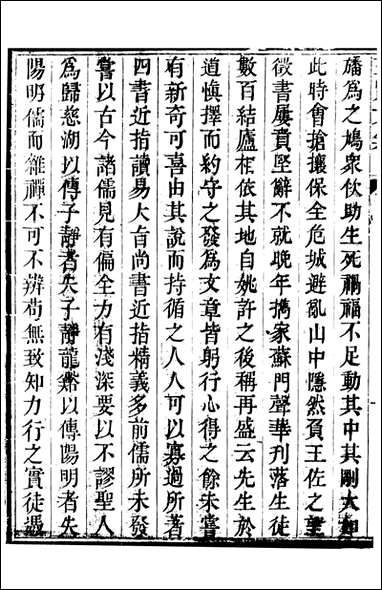 旛為之鳩衆佽助生死禍福不足動其中其剛大如
此時會搶攘保全危城避亂山中隱然負王佐之望
徵書屢賁堅辭不就晚年擕家蘇門聲華刋落生徒
數百結廬相依其地自姚許之後稱再盛云先生於
道慎擇而約守之發為文章皆躬行心得之餘未嘗
有新奇可喜由其說而持循之人人可以寡過所著
四書近指讀易大旨尚書近指精義多前儒所未發
嘗以古今諸儒見有偏全力有淺深要以不謬聖人
為歸慈湖以傳子靜者失子靜龍谿以傳陽明者失
陽明儒而雜禪不可不辨苟無致知力行之實徒憑